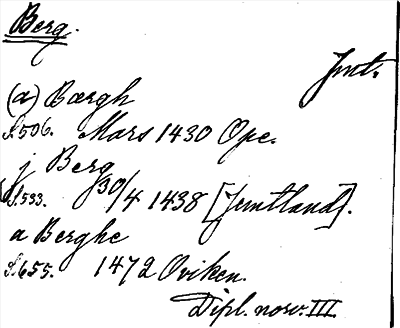 Berg.
Jmt.
(a) Bærgh
S. 506. Mars 1430 Ope.
j Berg
S. 533. 30/4 1438 [Jemtland].
a Berghe
S. 655. 1472 Oviken.
Dipl. norv. III